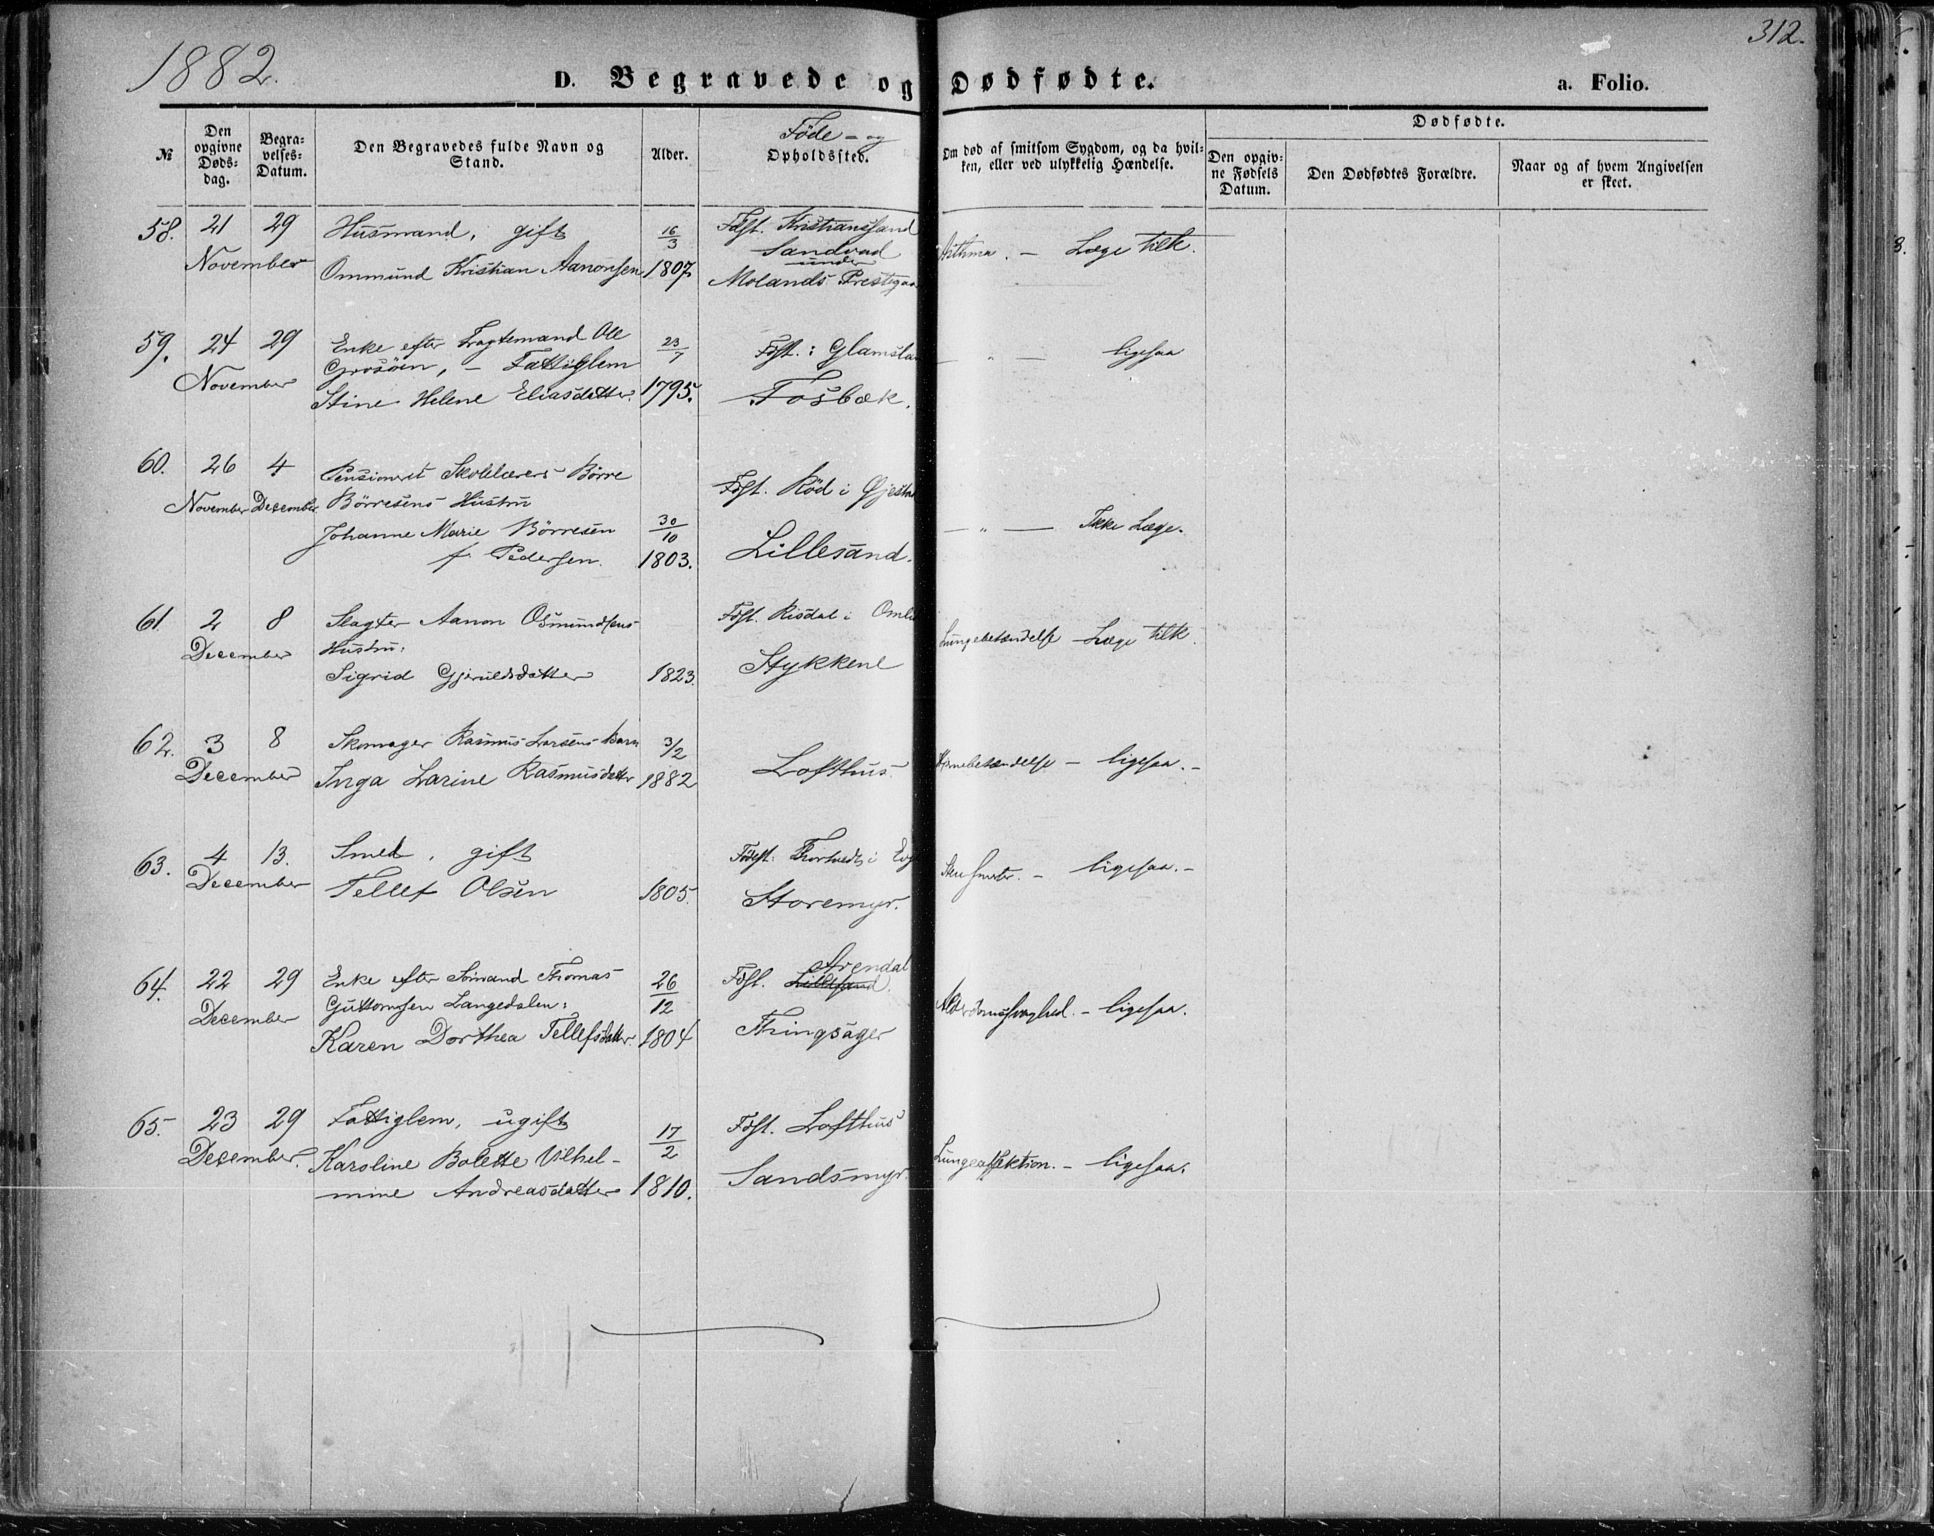 1882.
312.
D. Begravede og Dødfødte.
a. Folio.
№
Den opgivne Døds-dag.
Begra-velses-Datum.
Den Begravedes fulde Navn og Stand.
Alder.
Føde- og Opholdssted.
Om død af smitsom Sygdom, og da hvil-ken, eller ved ulykkelig Hændelse.
Dødfødte.
Den opgiv-ne Fødsels Datum.
Den Dødfødtes Forældre.
Naar og af hvem Angivelsen er skeet.
58. 21 29 Husmand, gift 16/3 Fdst. Kristianssand
Sandvad
November Ommund Kristian Aanonsen 1807 under
Molands Prestgaa
Asthma. — Læge tilk.
59. 24 29 Enke efter Fragtemand Ole 23/7 Fdst.: Glamsla
Grosöen, — Fattiglem
November Stine Helene Eliasdatter. 1795. Fosbæk.
— " — ligesaa
60. 26 4 Pensioneret Skolelærer Börre Fdst. Röd i Øjesta
November December. Börresens Hustru
Johanne Marie Börresen 30/10
f. Pedersen. 1803. Lillesand.
— " — Ikke Læge.
61. 2 8 Slagter Aanon Osmundsens Fdst. Risdal i Omli
December Hustru:
Sigrid Gjeruldsdatter 1823. Stykkene
Lungebetændelse — Læge tilk.
62. 3 8 Skomager Rasmus Larsens Barn 3/2
December Inga Larine Rasmusdatter 1882 Lofthus.
Hjernebetændelse — ligesaa. —
63. 4 13. Smed, gift Fdest: Thortvedt i Evj
December Tellef Olsen 1805. Storemyr.
ligesaa. —
64. 22 29 Enke efter Sömand Thomas 26/12 Fdst. Lillesand. Arendal
December Guttormsen Langedalen:
Karen Dorthea Tellefsdatter. 1804 Thingsager
Alderdomssvaghed. — ligesaa.
65. 23 29 Fattiglem, ugift 17/2 Fdst. Lofthus
December. Karoline Bolette Vilhel-
mine Andreasdatter 1810. Sandsmyr.
Lungeaffektion. — ligesaa.